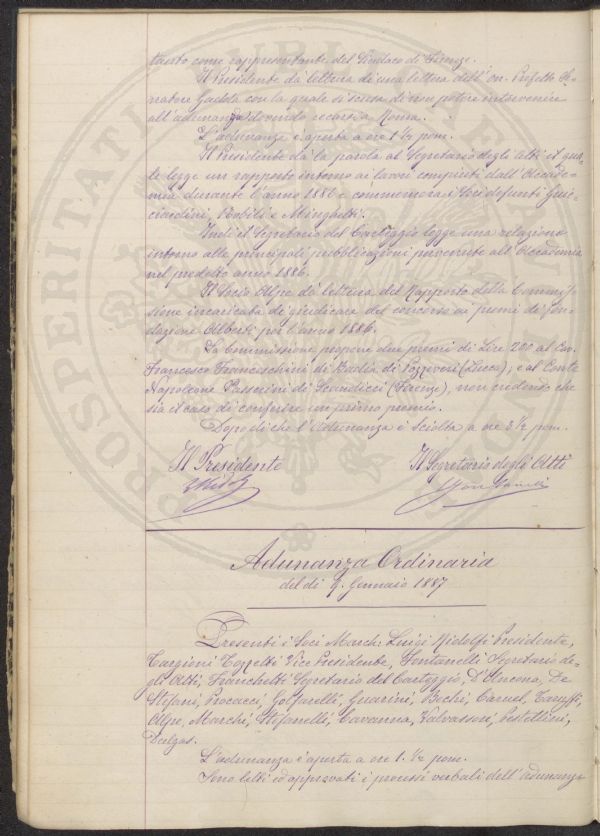 tanto come rappresentante del Sindaco di Firenze.
Il Presidente dà lettura di una lettera dell'on. Prefetto Se-
natore Gadda con la quale si scusa di non potere intervenire
all'adunanza dovendo recarsi a Roma.
L'adunanza è aperta a ore 1 ½ pom.
Il Presidente dà la parola al Segretario degli Atti il qua-
le legge un rapporto intorno ai lavori compiuti dall'Accade-
mia durante l'anno 1886 e commemora i Soci defunti Guic-
ciardini, Nobili e Minghetti.
Indi il Segretario del Carteggio legge una relazione
intorno alle principali pubblicazioni pervenute all'Accademia
nel predetto anno 1886.
Il Socio Alpe dà lettura del Rapporto della Commis-
sione incaricata di giudicare del concorso ai premi di fon-
dazione Alberti per l'anno 1886.
La Commissione propone due premi di Lire 200 al Cav.
Francesco Franceschini di Badia di Pozzeveri (Lucca), e al Conte
Napoleone Passerini di Scandicci (Firenze), non credendo che
sia il caso di conferire un primo premio.
Dopo di che l'Adunanza è sciolta a ore 3 ½ pom.
Il Presidente
Il Segretario degli Atti
Adunanza Ordinaria
del dì Gennaio 1887
Presenti i Soci March: Luigi Ridolfi Presidente,
Targioni Tozzetti Vice Presidente, Fontanelli Segretario de-
gli Atti, Franchetti Segretario del Carteggio, D'Ancona, De
Stefani, Procacci, Golfarelli, Guarini, Bechi, Caruel, Taruffi,
Alpe, Marchi, Stefanelli, Cavanna, Salvagnoli, Pestellini,
Dalgas.
L'adunanza è aperta a ore 1. ½ pom.
Sono letti ed approvati i processi verbali dell'adunanza
PROSPERITATI